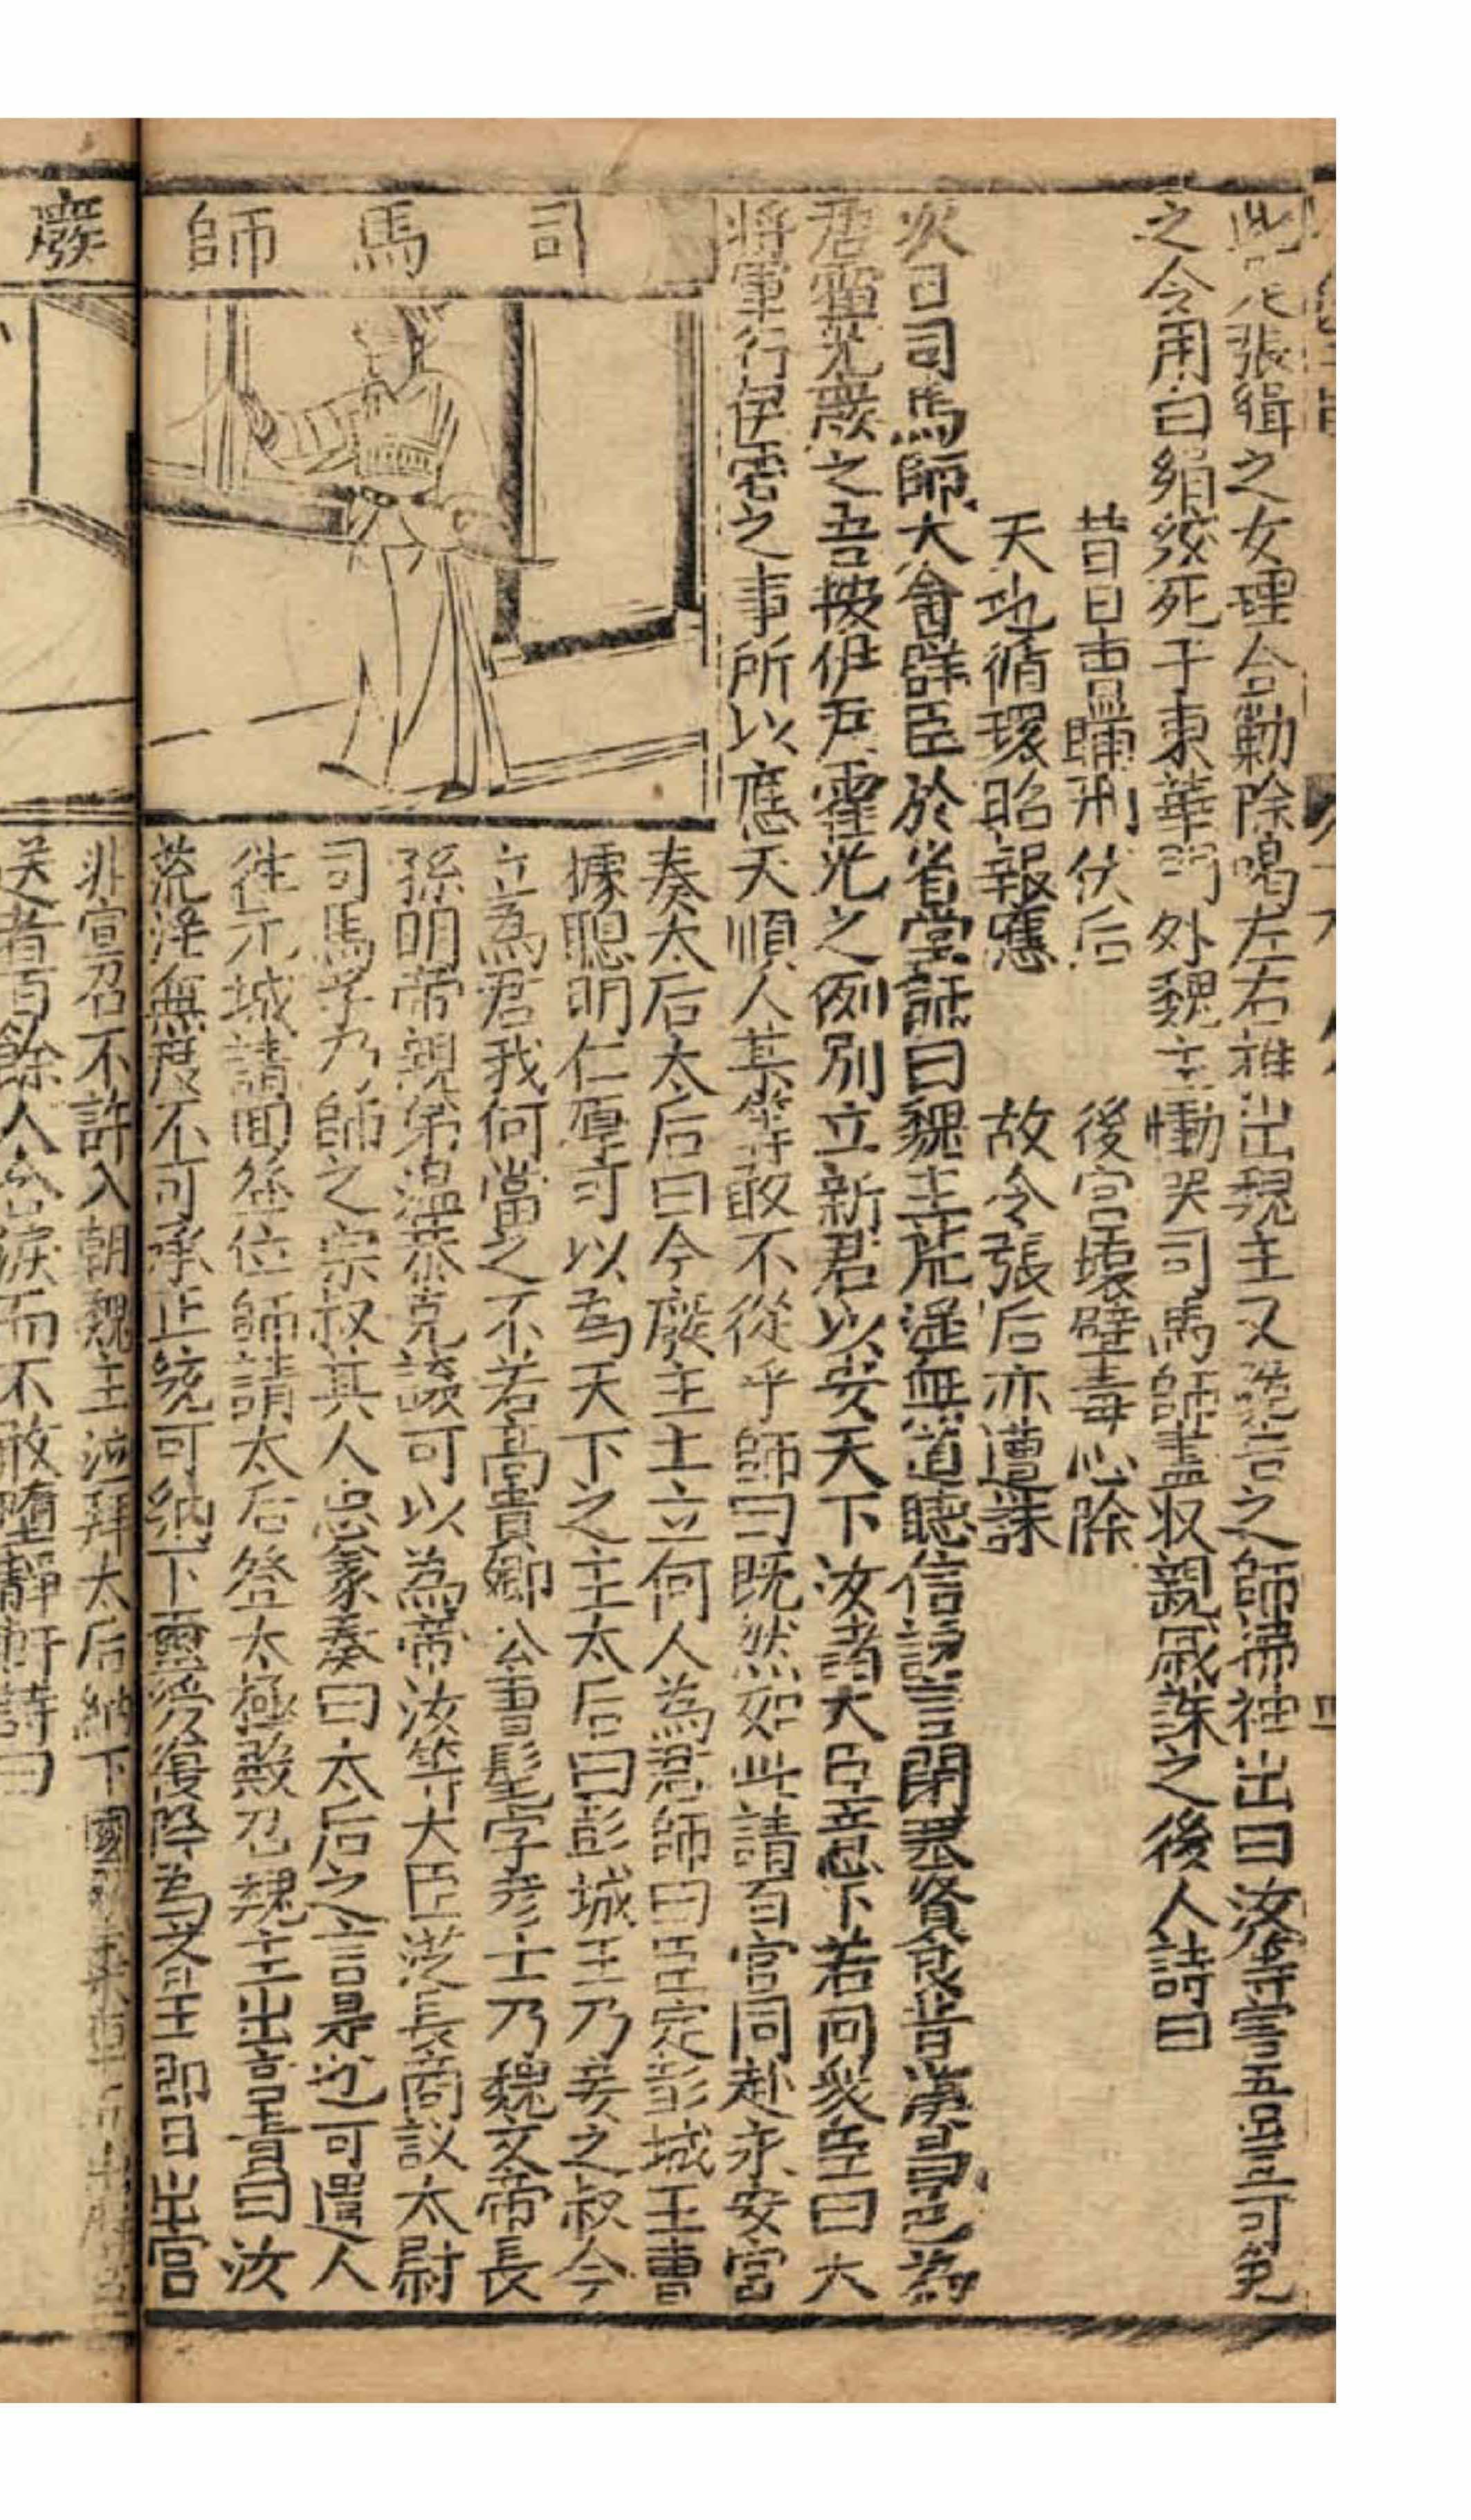 張緝之女理合勦除喝左右推出魏主又跪告之師拂袖出曰汝等害吾豈可免
之令用白絹絞死于東華門外魏主慟哭司馬師盡収親戚誅之後人詩曰
昔日曹瞞刑伏后　後宮壞壁毒心除
天地循環昭報應　故令張后亦遭誅
次日司馬師大會群臣於省堂話曰魏主荒淫無道聴信讒言閉塞賢良昔漢昌邑為
君霍光廢之吾按伊尹霍光之例別立新君以安天下汝諸大臣意下若何衆臣曰大
將軍行伊霍之事所以應天順人某等敢不從乎師曰既然如此請百官同赴永安宮
奏太后太后曰今廢主士立何人為君師曰臣定彭城王曹
據聰明仁厚可以為天下之主太后曰彭城王乃妾之叔今
立為君我何當之不若高貴卿公曹髦字彦士乃魏文帝長
孫明帝親弟溫恭克讓可以為帝汝等大臣従長商議太尉
司馬孚乃師之宗叔其人忠篆奏曰太后之言是也可遣人
徃元城請回登位師請太后登太極殿召魏主出言責曰汝
荒淫無度不可承正統可納下璽綬復降為齊王即日出宮
司馬師
廢
非宣召不許入朝魏主泣拜太后納下國
送者百餘人含淚而不敢墮靜軒詩曰